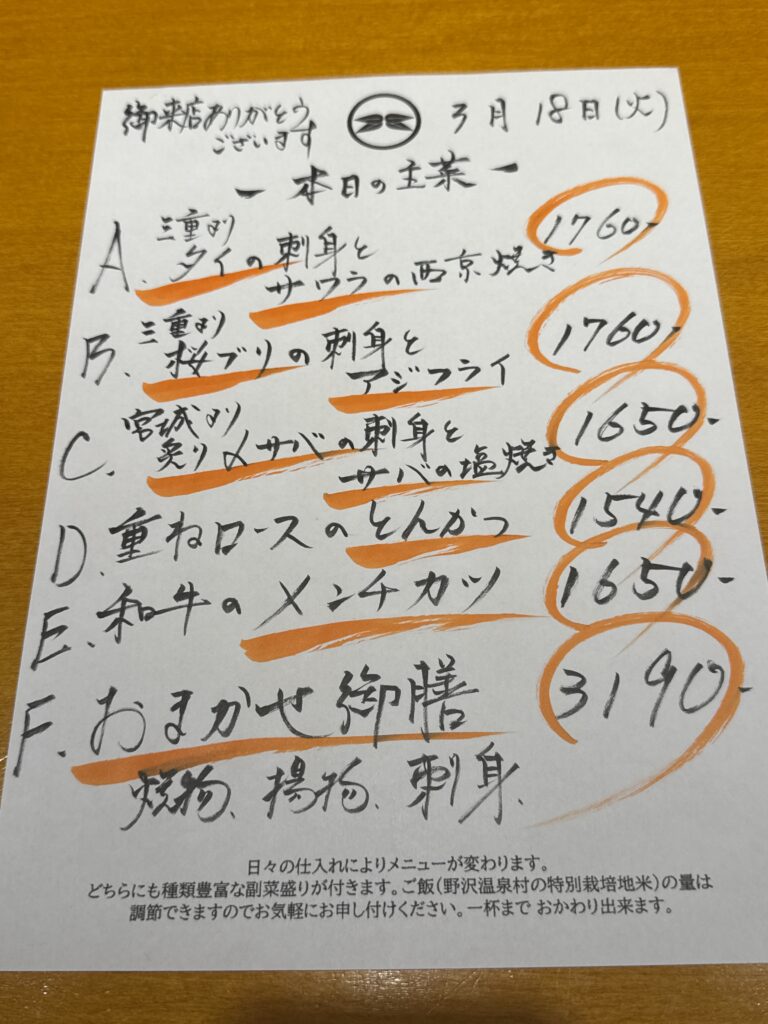 御来店ありがとう
ございます
3月18日(火)
- 本日の主菜 -
A. 三重より
タイの刺身と
サワラの西京焼き
1760-
B. 三重より
桜ブリの刺身と
アジフライ
1760-
C. 宮城より
炙り〆サバの刺身と
サバの塩焼き
1650-
D. 重ねロースのとんかつ 1540-
E. 和牛のメンチカツ 1650-
F. おまかせ御膳 3190-
焼物、揚物、刺身、
日々の仕入れによりメニューが変わります。
どちらにも種類豊富な副菜盛りが付きます。ご飯(野沢温泉村の特別栽培地米)の量は
調節できますのでお気軽にお申し付けください。一杯まで おかわり出来ます。